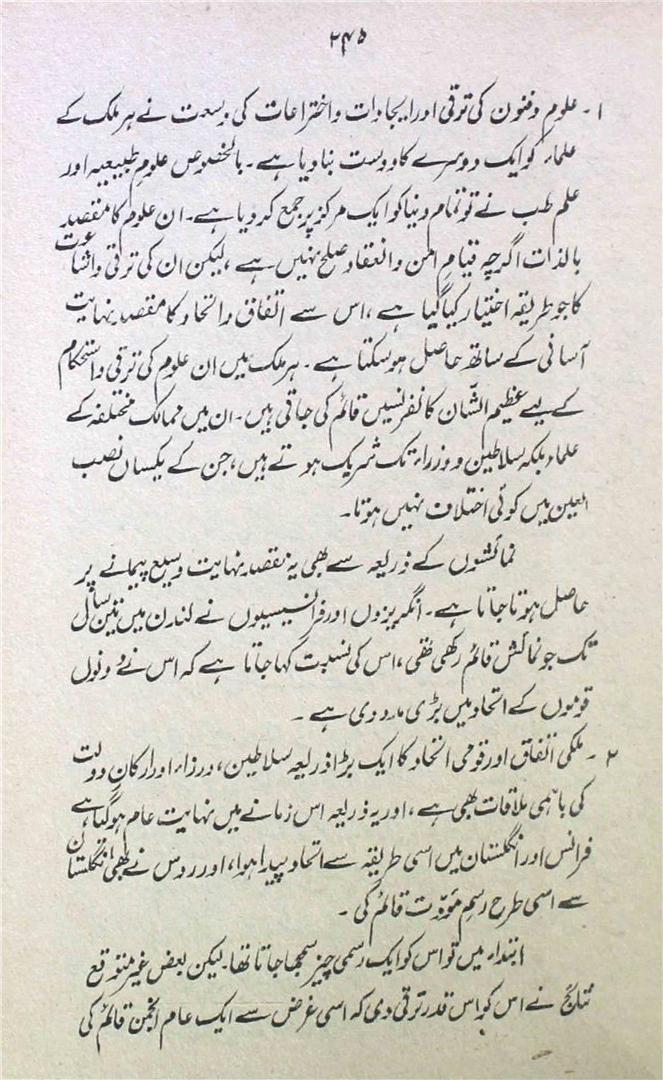 ۲۴۵
۱۔ علوم و فنون کی ترقی اور ایجادات و اختراعات کی وسعت نے ہر ملک کے
علماء کو ایک دوسرے کا دوست بنا دیا ہے۔ بالخصوص علوم طبیعیہ اور
علم طب نے تو تمام دنیا کو ایک مرکز پر جمع کر دیا ہے۔ ان علوم کا مقصد
بالذات اگرچہ قیام امن و انعقاد صلح نہیں ہے، لیکن ان کی ترقی و اشاعت
کا جو طریقہ اختیار کیا گیا ہے، اس سے اتفاق و اتحاد کا مقصد نہایت
آسانی کے ساتھ حاصل ہو سکتا ہے۔ ہر ملک میں ان علوم کی ترقی و استحکام
کے لیے عظیم الشّان کانفرنسیں قائم کی جاتی ہیں۔ ان میں ممالک مختلفہ کے
علماء بلکہ سلاطین و وزراء تک شریک ہوتے ہیں، جن کے یکساں نصب
العین میں کوئی اختلاف نہیں ہوتا۔
نمائشوں کے ذریعہ سے بھی یہ مقصد نہایت وسیع پیمانے پر
حاصل ہوتا جاتا ہے۔ انگریزوں اور فرانسیسیوں نے لندن میں تین سال
تک جو نمائش قائم رکھی تھی، اس کی نسبت کہا جاتا ہے کہ اس نے دونوں
قوموں کے اتحاد میں بڑی مدد دی ہے۔
۲۔ ملکی اتفاق اور قومی اتحاد کا ایک بڑا ذریعہ سلاطین، وزراء اور ارکانِ دولت
کی باہمی ملاقات بھی ہے، اور یہ ذریعہ اس زمانے میں نہایت عام ہو گیا ہے
فرانس اور انگلستان میں اسی طریقہ سے اتحاد پیدا ہوا، اور روس نے بھی انگلستان
سے اسی طرح رسم مودّت قائم کی۔
ابتداء میں تو اس کو ایک رسمی چیز سمجھا جاتا تھا۔ لیکن بعض غیر متوقع
نتائج نے اس کو اس قدر ترقی دی کہ اسی غرض سے ایک عام انجمن قائم کی